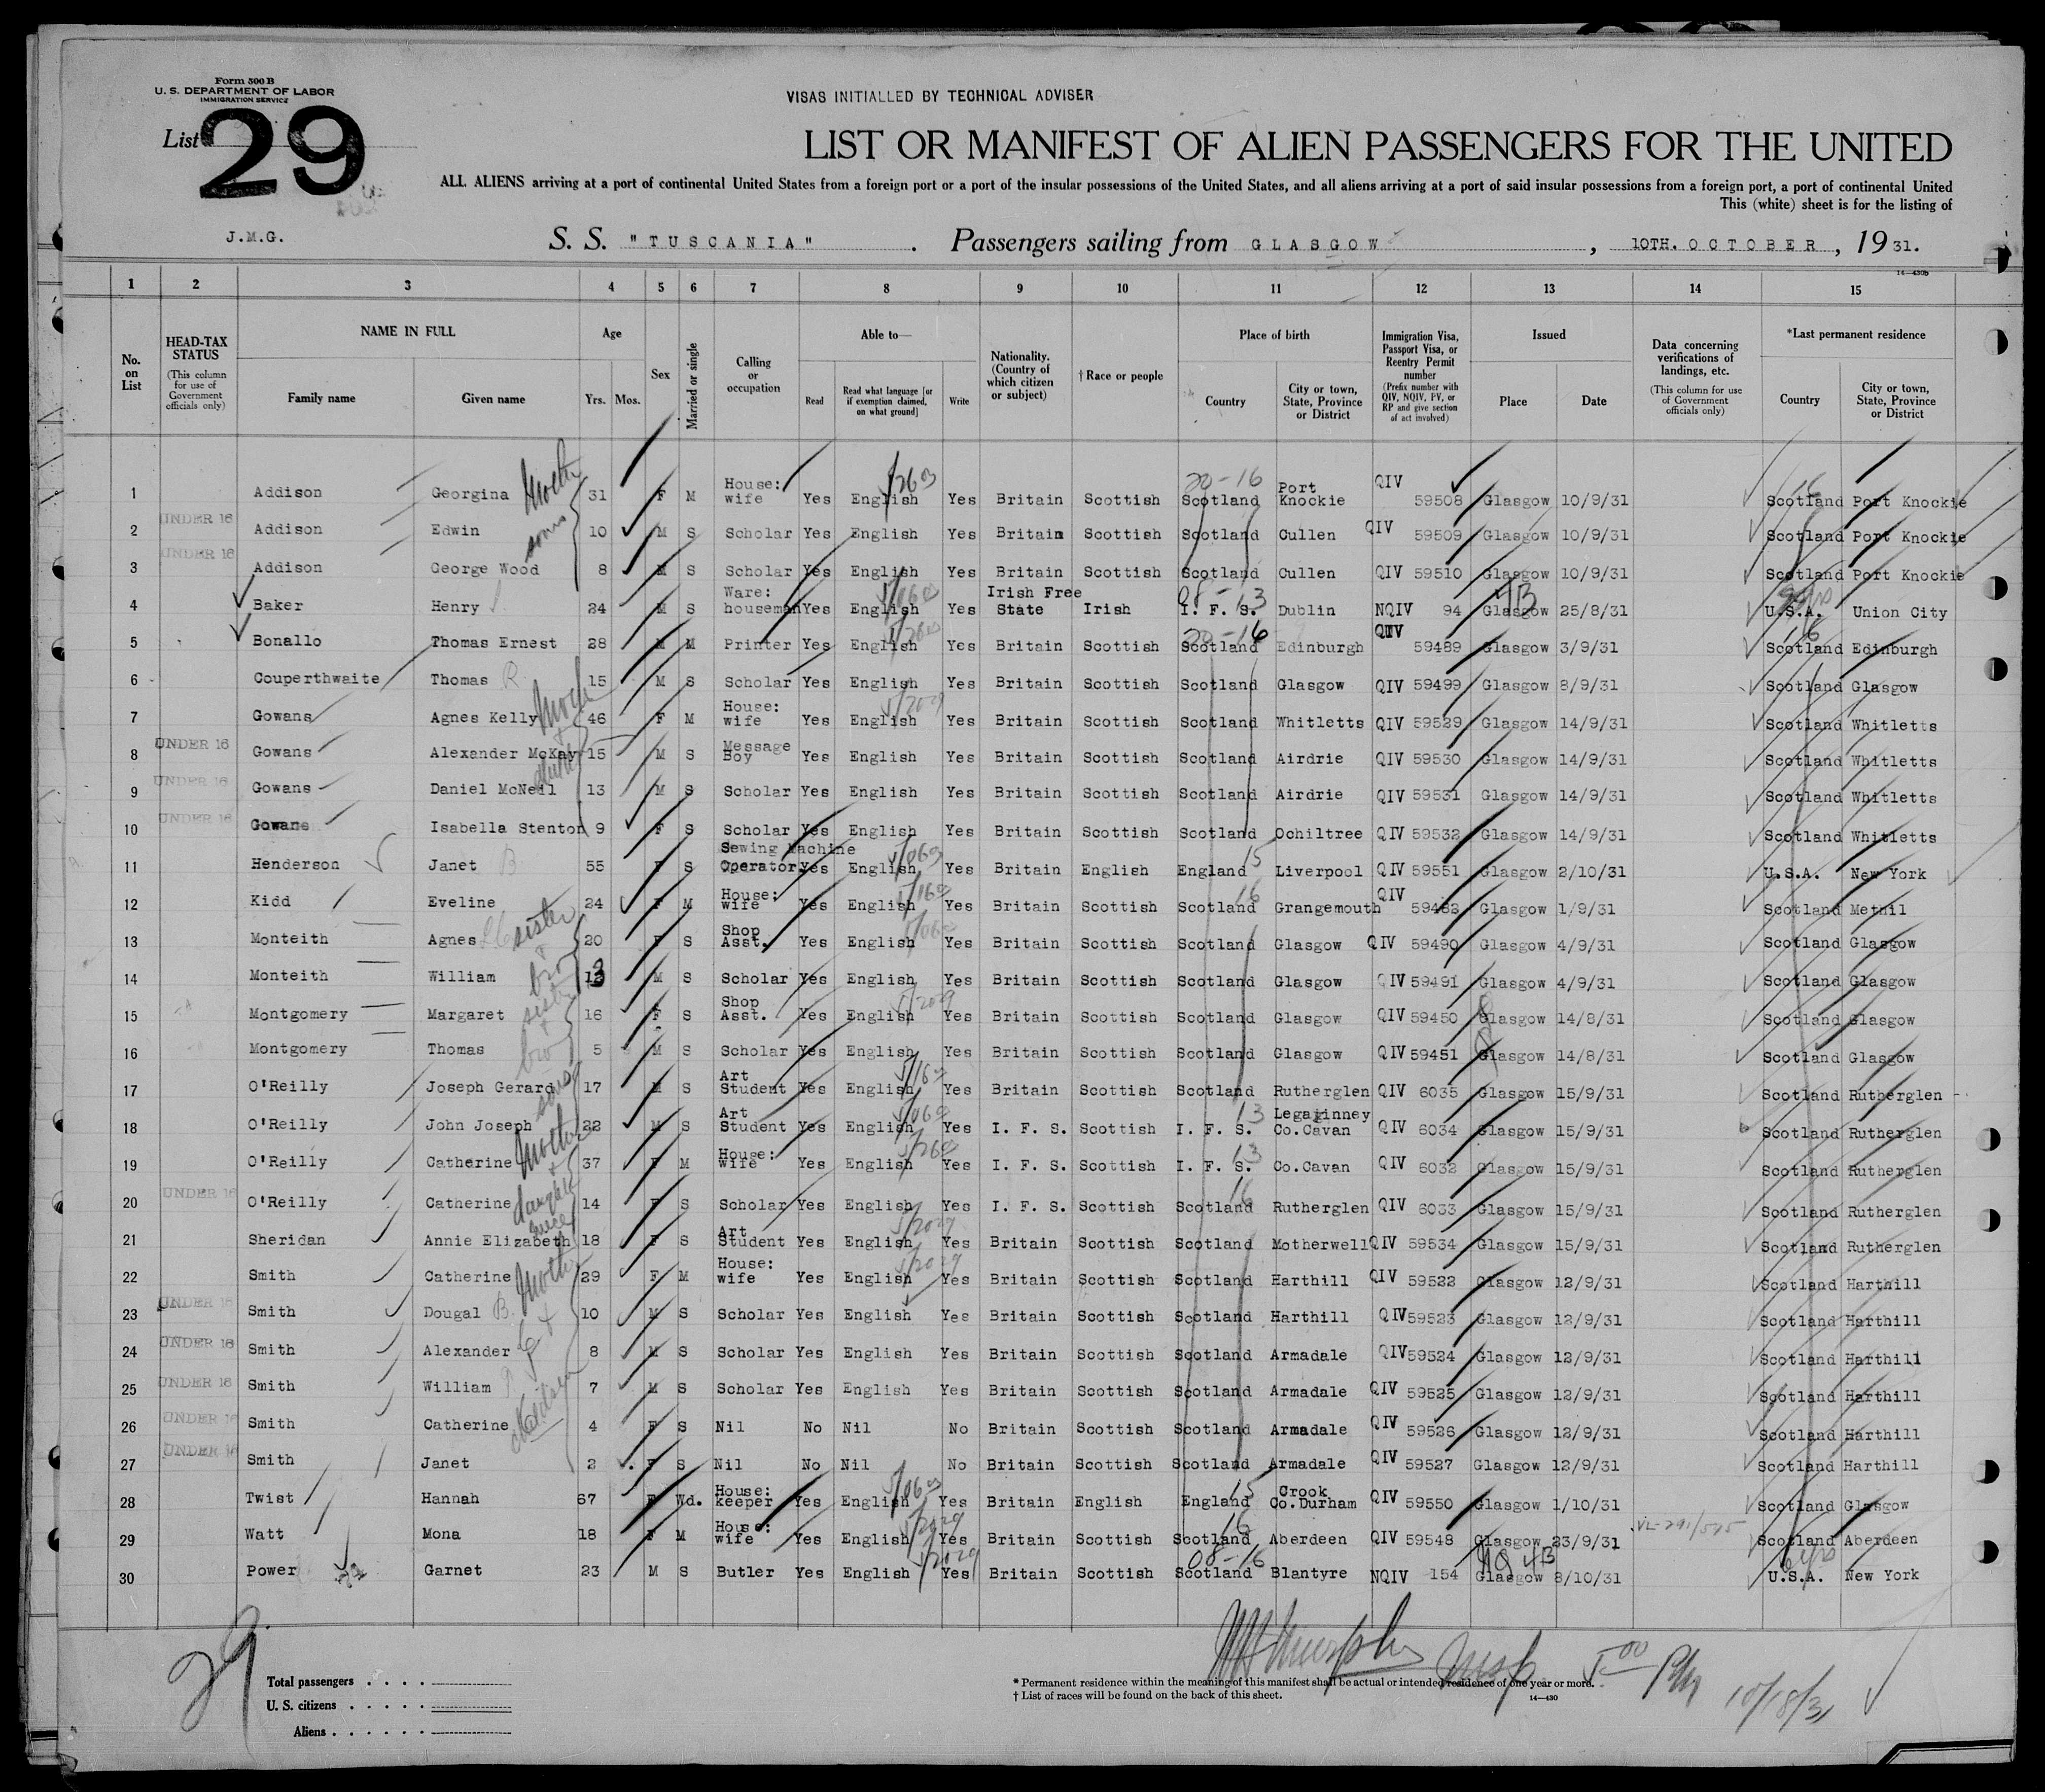 Form 500 B
U. S. DEPARTMENT OF LABOR
IMMIGRATION SERVICE
VISAS INITIALLED BY TECHNICAL ADVISER
List 29
LIST OR MANIFEST OF ALIEN PASSENGERS FOR THE UNITED
ALL ALIENS arriving at a port of continental United States from a foreign port or a port of the insular possessions of the United States, and all aliens arriving at a port of said insular possessions from a foreign port, a port of continental United
This (white) sheet is for the listing of
J.M.G. S. S. "TUSCANIA" . Passengers sailing from GLASGOW , 10TH. OCTOBER , 19 31.
14—430b
1 2 3 4 5 6 7 8 9 10 11 12 13 14 15
No. on List
HEAD-TAX STATUS (This column for use of Government officials only)
NAME IN FULL Family name Given name
Age Yrs. Mos.
Sex
Married or single
Calling or occupation
Able to— Read Read what language [or if exemption claimed, on what ground] Write
Nationality. (Country of which citizen or subject)
† Race or people
Place of birth Country City or town, State, Province or District
Immigration Visa, Passport Visa, or Reentry Permit number (Prefix number with QIV, NQIV, PV, or RP and give section of act involved)
Issued Place Date
Data concerning verifications of landings, etc. (This column for use of Government officials only)
*Last permanent residence Country City or town, State, Province or District
1 Addison Georgina Mother 31 F M House: wife Yes English Yes Britain Scottish 20-16 Scotland Port Knockie QIV 59508 Glasgow 10/9/31 Scotland Port Knockie
2 UNDER 16 Addison Edwin sons 10 M S Scholar Yes English Yes Britain Scottish Scotland Cullen QIV 59509 Glasgow 10/9/31 Scotland Port Knockie
3 UNDER 16 Addison George Wood 8 M S Scholar Yes English Yes Britain Scottish Scotland Cullen QIV 59510 Glasgow 10/9/31 Scotland Port Knockie
4 Baker Henry 24 M S Ware: houseman Yes English Yes Irish Free State Irish 08-13 I. F. S. Dublin NQIV 94 Glasgow 4B 25/8/31 U.S.A. Union City
5 Bonallo Thomas Ernest 28 M M Printer Yes English Yes Britain Scottish 20-16 Scotland Edinburgh QIV 59489 Glasgow 3/9/31 Scotland Edinburgh
6 Couperthwaite Thomas R 15 M S Scholar Yes English Yes Britain Scottish Scotland Glasgow QIV 59499 Glasgow 8/9/31 Scotland Glasgow
7 Gowans Agnes Kelly Mother 46 F M House: wife Yes English Yes Britain Scottish Scotland Whitletts QIV 59529 Glasgow 14/9/31 Scotland Whitletts
8 UNDER 16 Gowans Alexander McKay 15 M S Message Boy Yes English Yes Britain Scottish Scotland Airdrie QIV 59530 Glasgow 14/9/31 Scotland Whitletts
9 UNDER 16 Gowans Daniel McNeil 13 M S Scholar Yes English Yes Britain Scottish Scotland Airdrie QIV 59531 Glasgow 14/9/31 Scotland Whitletts
10 UNDER 16 Gowans Isabella Stenton 9 F S Scholar Yes English Yes Britain Scottish Scotland Ochiltree QIV 59532 Glasgow 14/9/31 Scotland Whitletts
11 Henderson Janet B 55 F S Sewing Machine Operator Yes English Yes Britain English England 15 Liverpool QIV 59551 Glasgow 2/10/31 U.S.A. New York
12 Kidd Eveline 24 F M House: wife Yes English Yes Britain Scottish Scotland 16 Grangemouth QIV 59483 Glasgow 1/9/31 Scotland Methil
13 Monteith Agnes sister 20 F S Shop Asst. Yes English Yes Britain Scottish Scotland Glasgow QIV 59490 Glasgow 4/9/31 Scotland Glasgow
14 Monteith William bro 13 M S Scholar Yes English Yes Britain Scottish Scotland Glasgow QIV 59491 Glasgow 4/9/31 Scotland Glasgow
15 Montgomery Margaret sister 16 F S Shop Asst. Yes English Yes Britain Scottish Scotland Glasgow QIV 59450 Glasgow 14/8/31 Scotland Glasgow
16 Montgomery Thomas bro 5 M S Scholar Yes English Yes Britain Scottish Scotland Glasgow QIV 59451 Glasgow 14/8/31 Scotland Glasgow
17 O'Reilly Joseph Gerard sons 17 M S Art Student Yes English Yes Britain Scottish Scotland Rutherglen QIV 6035 Glasgow 15/9/31 Scotland Rutherglen
18 O'Reilly John Joseph 22 M S Art Student Yes English Yes I. F. S. Scottish I. F. S. 13 Legaginney Co.Cavan QIV 6034 Glasgow 15/9/31 Scotland Rutherglen
19 O'Reilly Catherine Mother 37 F M House: wife Yes English Yes I. F. S. Scottish I. F. S. 13 Co.Cavan QIV 6032 Glasgow 15/9/31 Scotland Rutherglen
20 UNDER 16 O'Reilly Catherine daughter 14 F S Scholar Yes English Yes I. F. S. Scottish Scotland 16 Rutherglen QIV 6033 Glasgow 15/9/31 Scotland Rutherglen
21 Sheridan Annie Elizabeth niece 18 F S Art Student Yes English Yes Britain Scottish Scotland Motherwell QIV 59534 Glasgow 15/9/31 Scotland Rutherglen
22 Smith Catherine Mother 29 F M House: wife Yes English Yes Britain Scottish Scotland Harthill QIV 59522 Glasgow 12/9/31 Scotland Harthill
23 UNDER 16 Smith Dougal B. 10 M S Scholar Yes English Yes Britain Scottish Scotland Harthill QIV 59523 Glasgow 12/9/31 Scotland Harthill
24 UNDER 16 Smith Alexander 8 M S Scholar Yes English Yes Britain Scottish Scotland Armadale QIV 59524 Glasgow 12/9/31 Scotland Harthill
25 UNDER 16 Smith William 7 M S Scholar Yes English Yes Britain Scottish Scotland Armadale QIV 59525 Glasgow 12/9/31 Scotland Harthill
26 UNDER 16 Smith Catherine 4 F S Nil No Nil No Britain Scottish Scotland Armadale QIV 59526 Glasgow 12/9/31 Scotland Harthill
27 UNDER 16 Smith Janet 2 F S Nil No Nil No Britain Scottish Scotland Armadale QIV 59527 Glasgow 12/9/31 Scotland Harthill
28 Twist Hannah 67 F Wd. House: keeper Yes English Yes Britain English England 15 Crook Co.Durham QIV 59550 Glasgow 1/10/31 Scotland Glasgow
29 Watt Mona 18 F M House: wife Yes English Yes Britain Scottish Scotland 16 Aberdeen QIV 59548 Glasgow 23/9/31 Scotland Aberdeen
30 Power Garnet 23 M S Butler Yes English Yes Britain Scottish 08-16 Scotland Blantyre NQIV 154 Glasgow 4B 8/10/31 U.S.A. New York
29
Total passengers . . . .
U. S. citizens . . . . .
Aliens . . . . . .
* Permanent residence within the meaning of this manifest shall be actual or intended residence of one year or more.
† List of races will be found on the back of this sheet. 14—430
Insp 5 00 PM 10/18/31